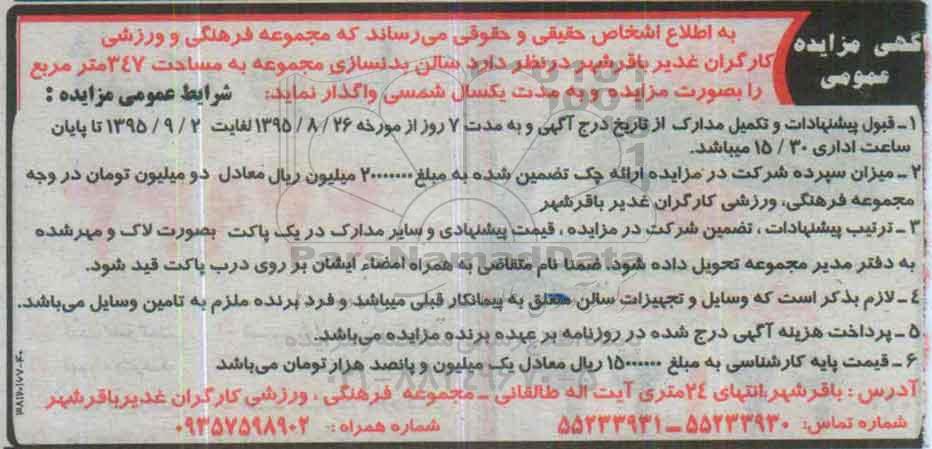 آگهی مزایده
عمومی
به اطلاع اشخاص حقیقی و حقوقی می‌رساند که مجموعه فرهنگی و ورزشی
کارگران غدیر باقرشهر در نظر دارد سالن بدنسازی مجموعه به مساحت ۳۴۷متر مربع
را بصورت مزایده و به مدت یکسال شمسی واگذار نماید: شرایط عمومی مزایده :
۱ـ قبول پیشنهادات و تکمیل مدارک از تاریخ درج آگهی و به مدت ۷ روز از مورخه ۲۶ / ۸ / ۱۳۹۵ لغایت ۲ / ۹ / ۱۳۹۵ تا پایان
ساعت اداری ۳۰ / ۱۵ میباشد.
۲ـ میزان سپرده شرکت در مزایده ارائه چک تضمین شده به مبلغ ۲۰۰۰۰۰۰۰ میلیون ریال معادل دو میلیون تومان در وجه
مجموعه فرهنگی، ورزشی کارگران غدیر باقرشهر
۳ـ ترتیب پیشنهادات ، تضمین شرکت در مزایده ، قیمت پیشنهادی و سایر مدارک در یک پاکت بصورت لاک و مهر شده
به دفتر مدیر مجموعه تحویل داده شود. ضمنا نام متقاضی به همراه امضاء ایشان بر روی درب پاکت قید شود.
۴ـ لازم بذکر است که وسایل و تجهیزات سالن متعلق به پیمانکار قبلی میباشد و فرد برنده ملزم به تامین وسایل می‌باشد.
۵ـ پرداخت هزینه آگهی درج شده در روزنامه بر عهده برنده مزایده می‌باشد.
۶ـ قیمت پایه کارشناسی به مبلغ ۱۵۰۰۰۰۰۰ ریال معادل یک میلیون و پانصد هزار تومان می‌باشد
آدرس : باقرشهر انتهای ۲۴متری آیت اله طالقانی ـ مجموعه فرهنگی ، ورزشی کارگران غدیرباقرشهر
شماره تماس: ۵۵۲۳۳۹۳۰ ـ ۵۵۲۳۳۹۳۱ شماره همراه : ۰۹۳۵۷۵۹۸۹۰۲
ParsNamadData